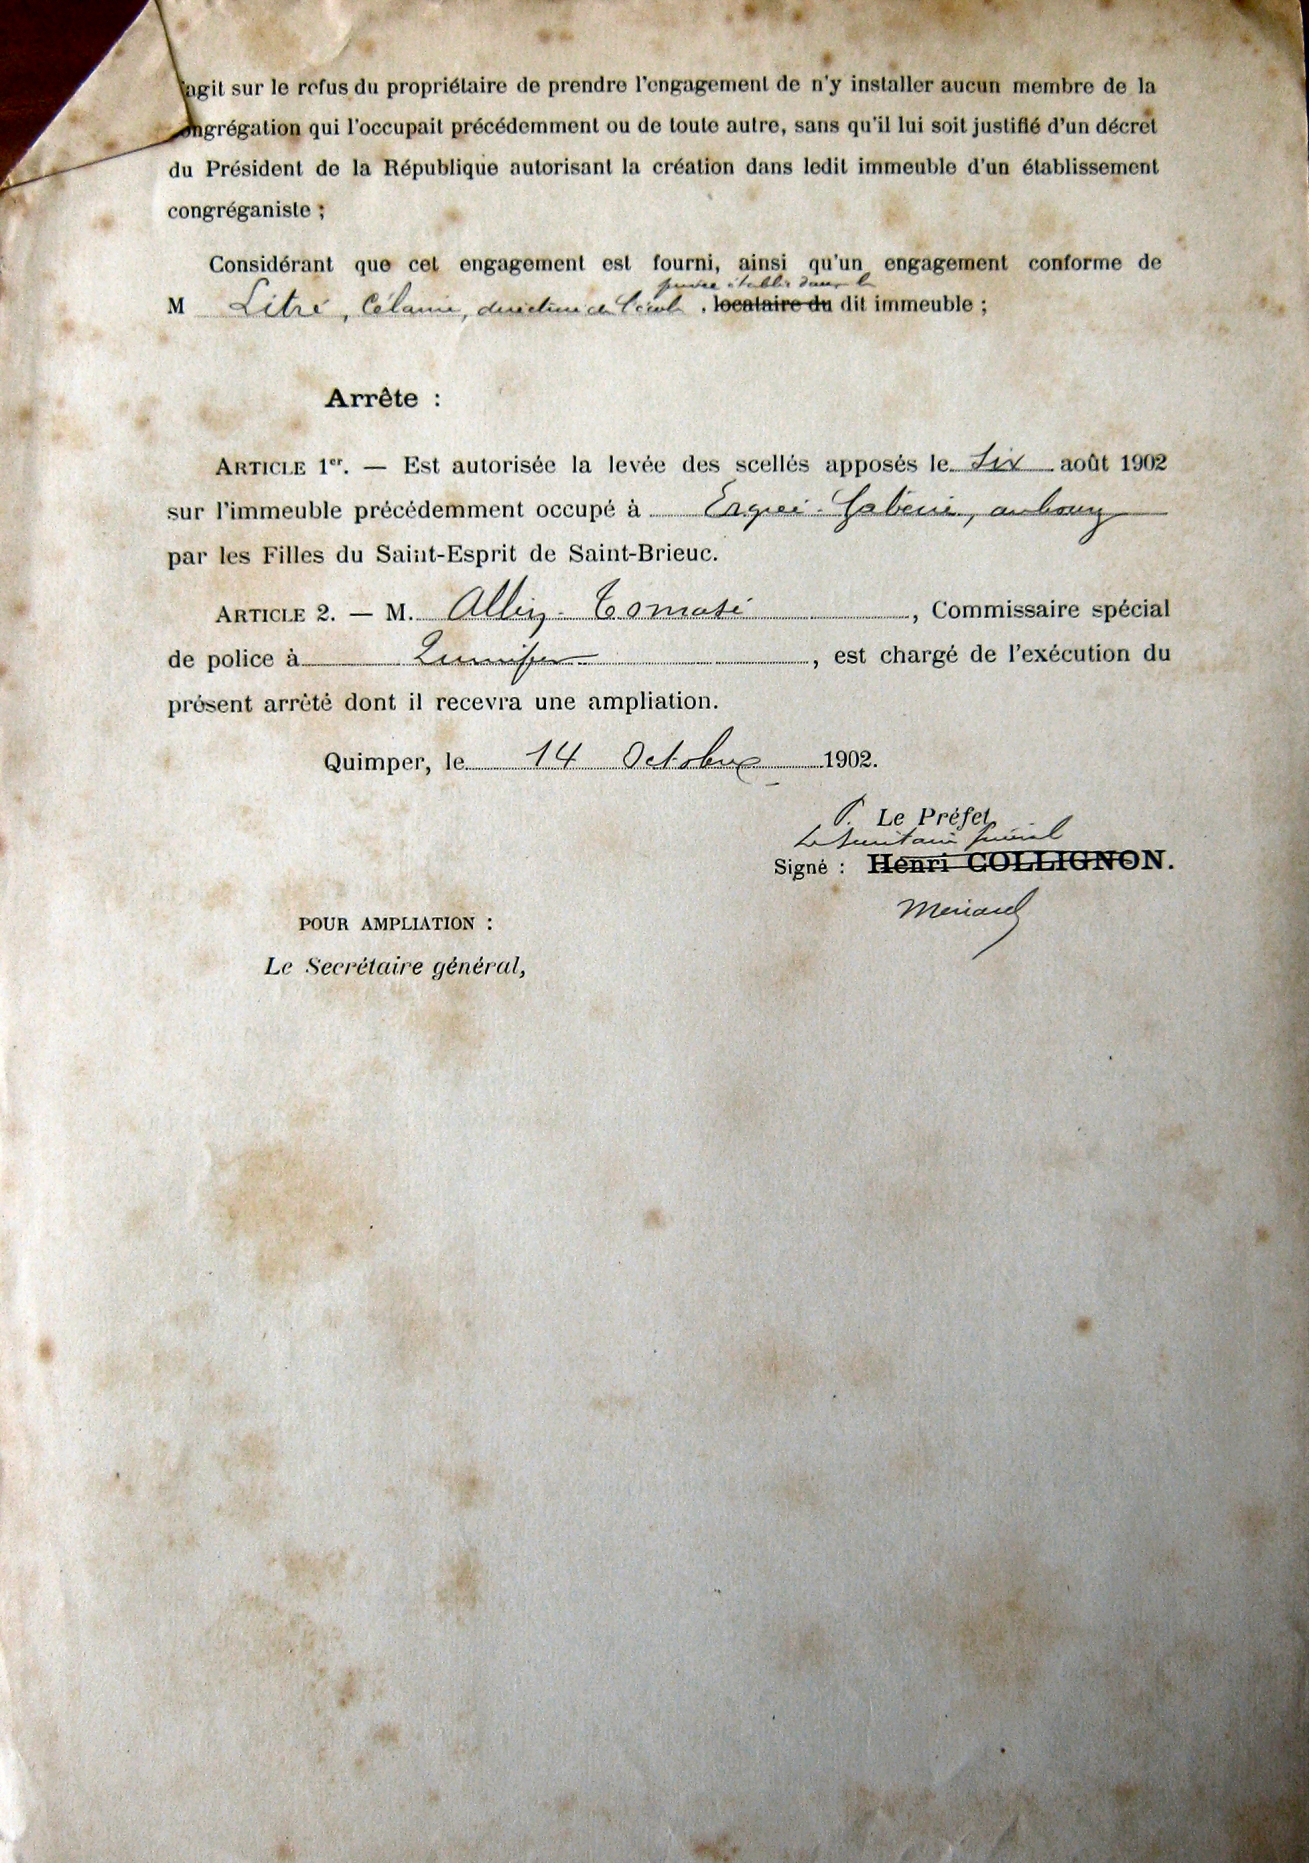 'agit sur le refus du propriétaire de prendre l'engagement de n'y installer aucun membre de la
ongrégation qui l'occupait précédemment ou de toute autre, sans qu'il lui soit justifié d'un décret
du Président de la République autorisant la création dans ledit immeuble d'un établissement
congréganiste ;
Considérant que cet engagement est fourni, ainsi qu'un engagement conforme de
privée établie dans le
M Litré, directrice de l'école, locataire du dit immeuble ;
Arrête :
ARTICLE 1er. — Est autorisée la levée des scellés apposés le six août 1902
sur l'immeuble précédemment occupé à Ergué-Gabéric, au bourg
par les Filles du Saint-Esprit de Saint-Brieuc.
ARTICLE 2. — M. Tomasi, Commissaire spécial
de police à Quimper, est chargé de l'exécution du
présent arrêté dont il recevra une ampliation.
Quimper, le 14 Octobre 1902.
P. Le Préfet
Le Secrétaire général
Signé : Henri COLLIGNON.
Menard
POUR AMPLIATION :
Le Secrétaire général,